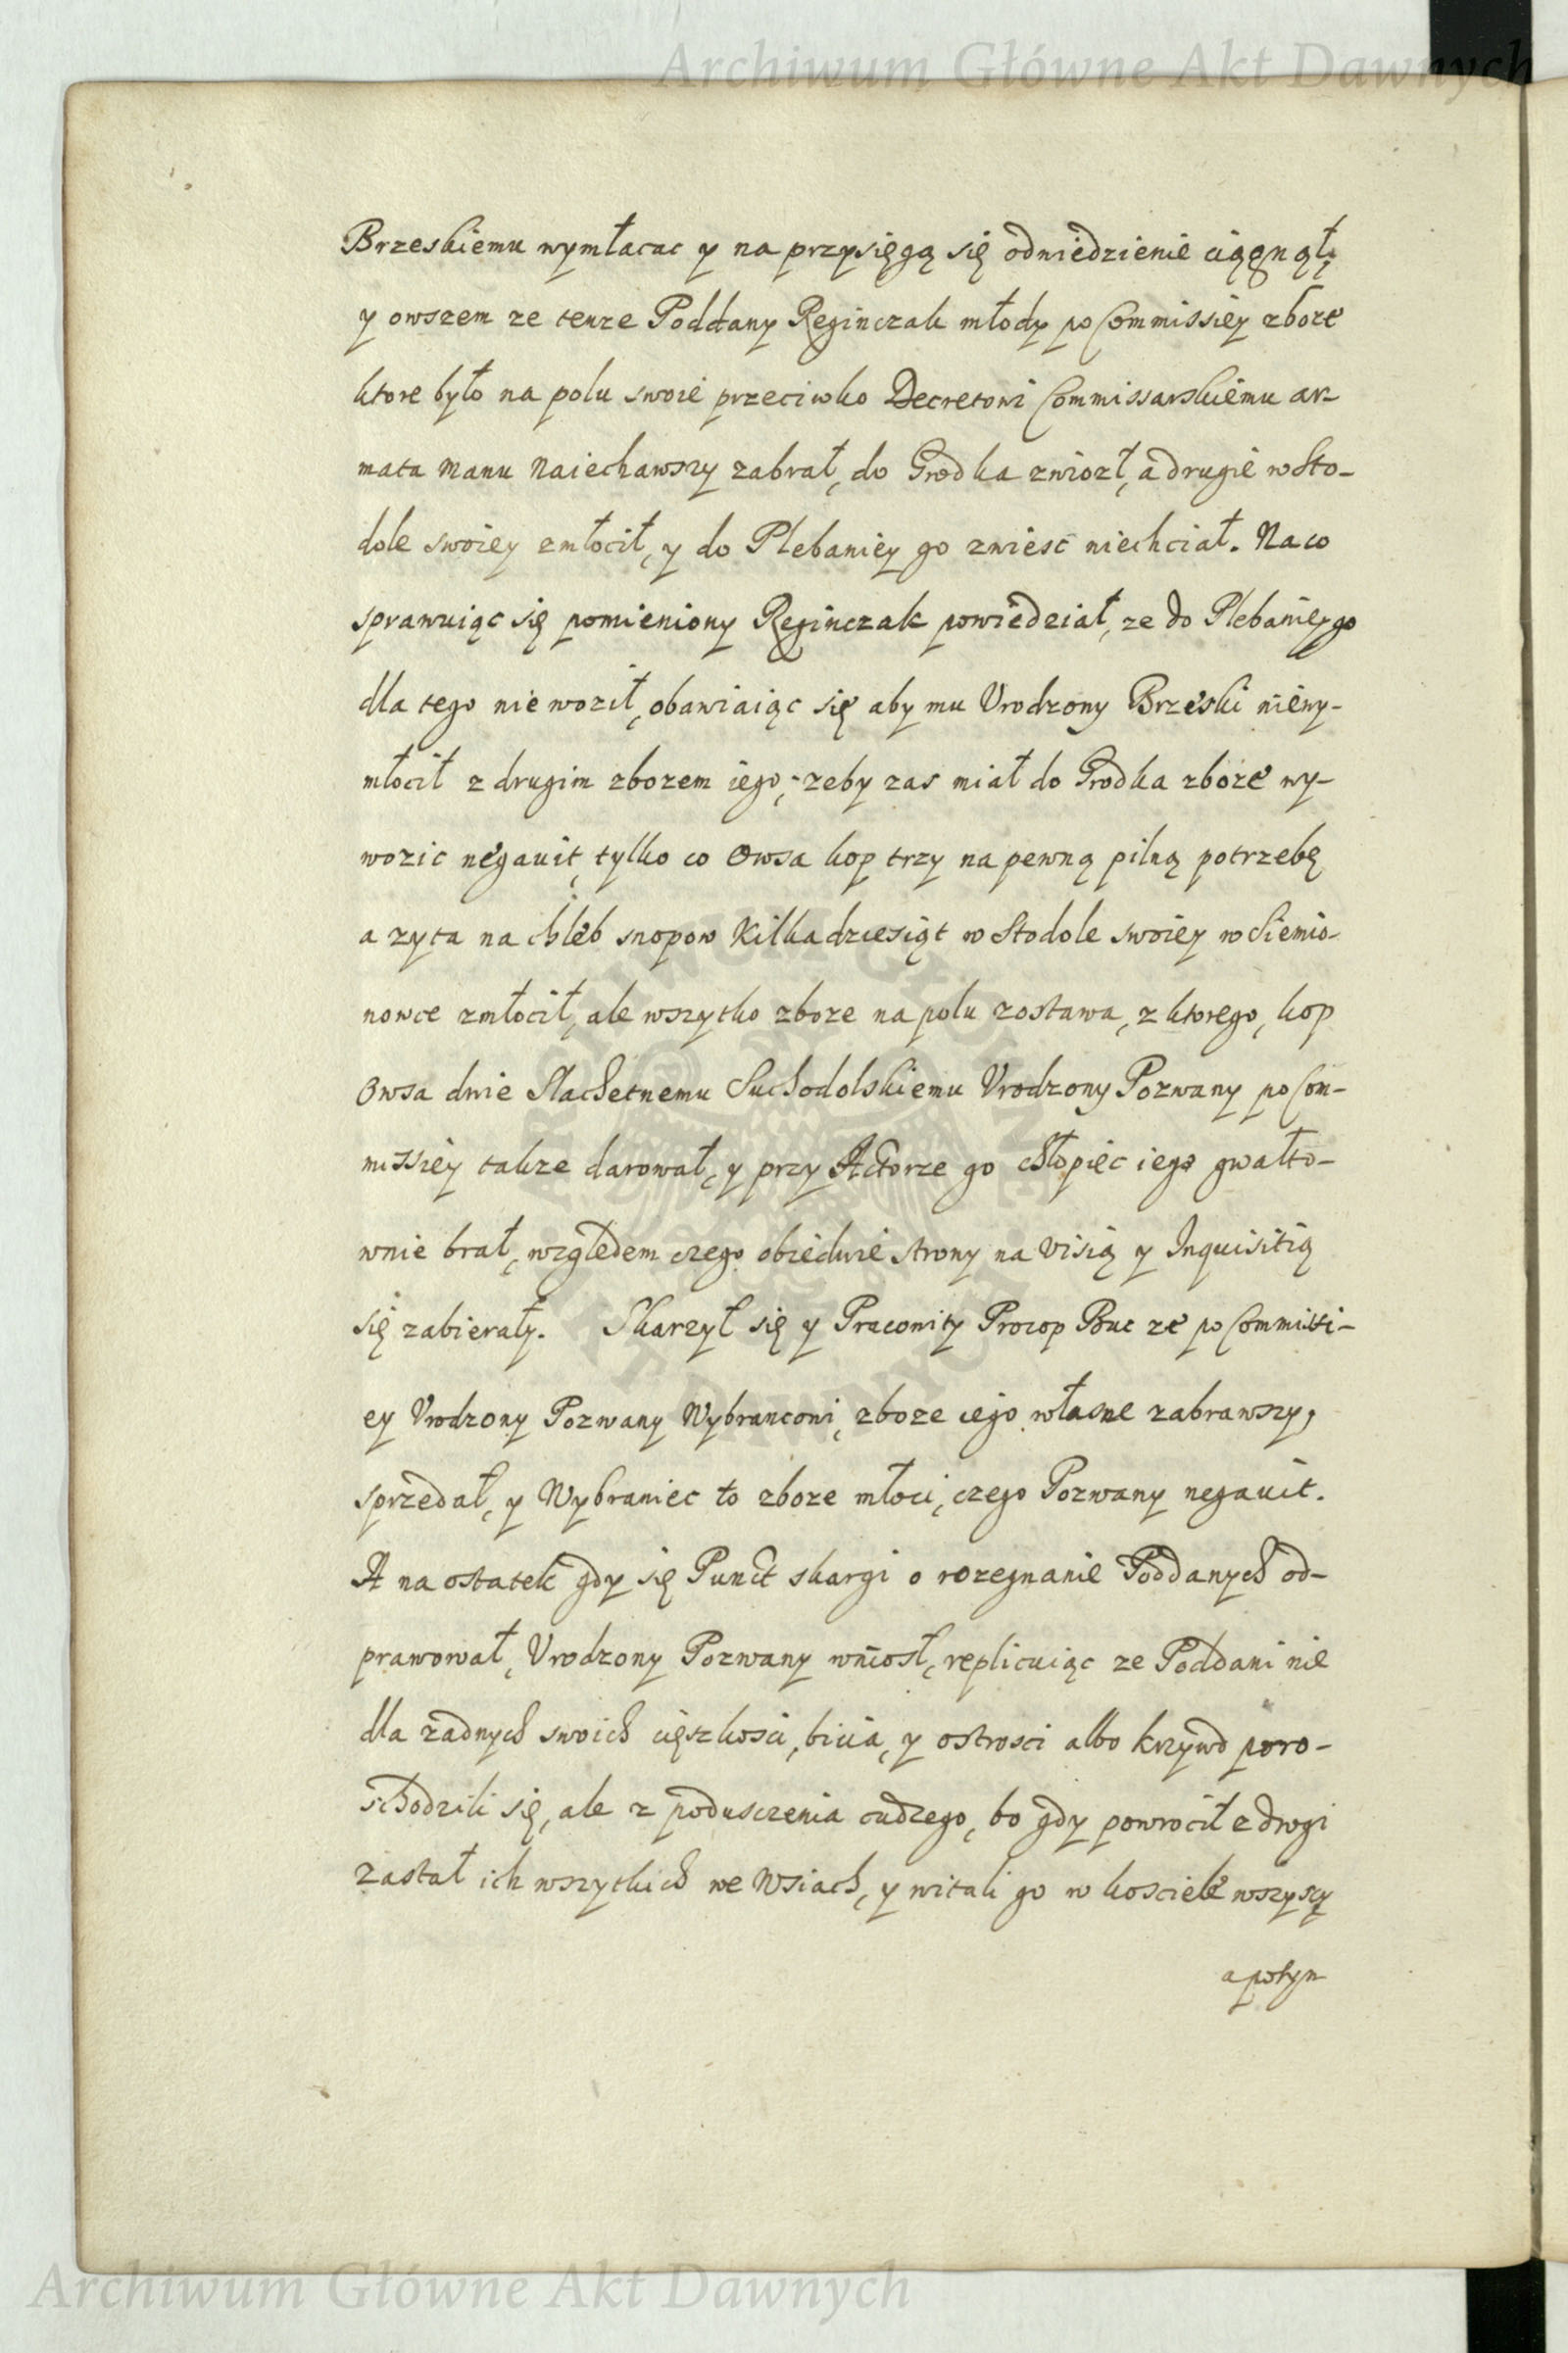 Archiwum Główne Akt Dawnych
Brzeskiemu wymłacac y na przysięgą się odwiedzienie ciągnął,
y owszem ze tenze Poddany Reginczak młody po Commissiey zboze
ktore było na polu swoie przeciwko Decretowi Commissarskiemu ar-
mata manu Naiechawszy zabrał, do Grodka zwiozł, a drugie w Sto-
dole swoiey zmłocił, y do Plebaniey go zwiesc niechciał. Na co
sprawuiąc się pomieniony Reginczak powiedział, ze do Plebaniey go
dla tego nie woził, obawiaiąc się aby mu Vrodzony Brzeski niewy-
młocił z drugim zbozem iego, zeby zas miał do Grodka zboze wy-
wozic negauit, tylko co Owsa kop trzy na pewną pilną potrzebę
a zyta na chleb snopow Kilkadziesiąt w Stodole swoiey w Siemio-
nowce zmłocił, ale wszytko zboze na polu zostawa, z ktorego, kop
Owsa dwie Slachetnemu Suchodolskiemu Vrodzony Pozwany po Com-
missiey takze darował, y przy Actorze go chłopięc iego gwałto-
wnie brał, względem czego obiedwie strony na Visią y Inquisitią
się zabierały. Skarzył się y Pracowity Procop Buc ze po Commissi-
ey Vrodzony Pozwany Wybrancowi, zboze iego własne zabrawszy,
sprzedał, y Wybraniec to zboze młoci, czego Pozwany negauit.
A na ostatek gdy się Punct skargi o rozegnanie Poddanych od-
prawował, Vrodzony Pozwany wniosł, replicuiąc ze Poddani nie
dla zadnych swoich cięszkosci, bicia, y ostrosci albo krzywd poro-
schodzili się, ale z poduszczenia cudzego, bo gdy powrocił z drogi
zastał ich wszytkich we Wsiach, y witali go w kosciele wszyscy
a potym
Archiwum Główne Akt Dawnych